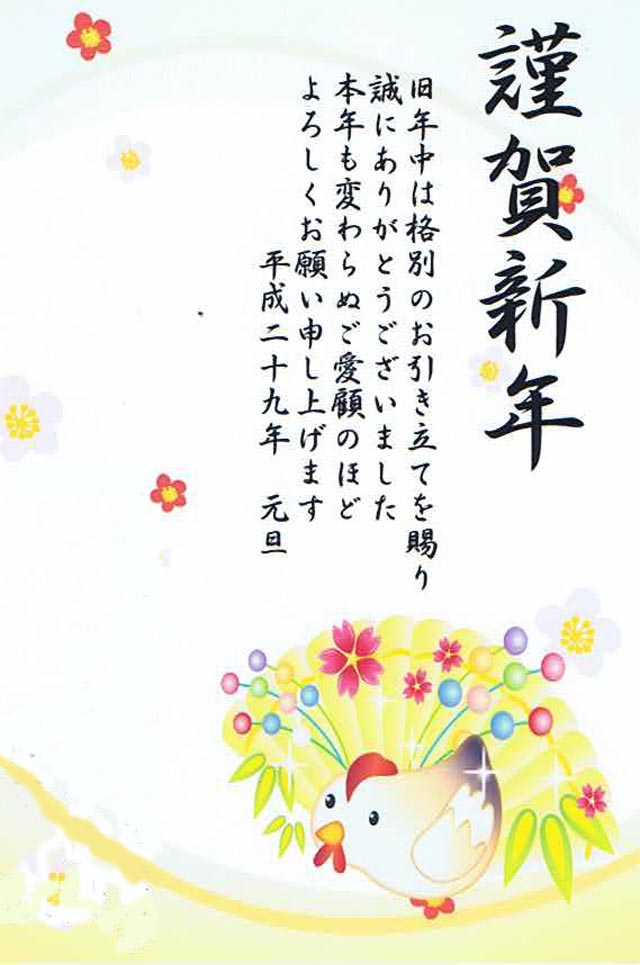 謹賀新年
旧年中は格別のお引き立てを賜り
誠にありがとうございました
本年も変わらぬご愛顧のほど
よろしくお願い申し上げます
平成二十九年　元旦